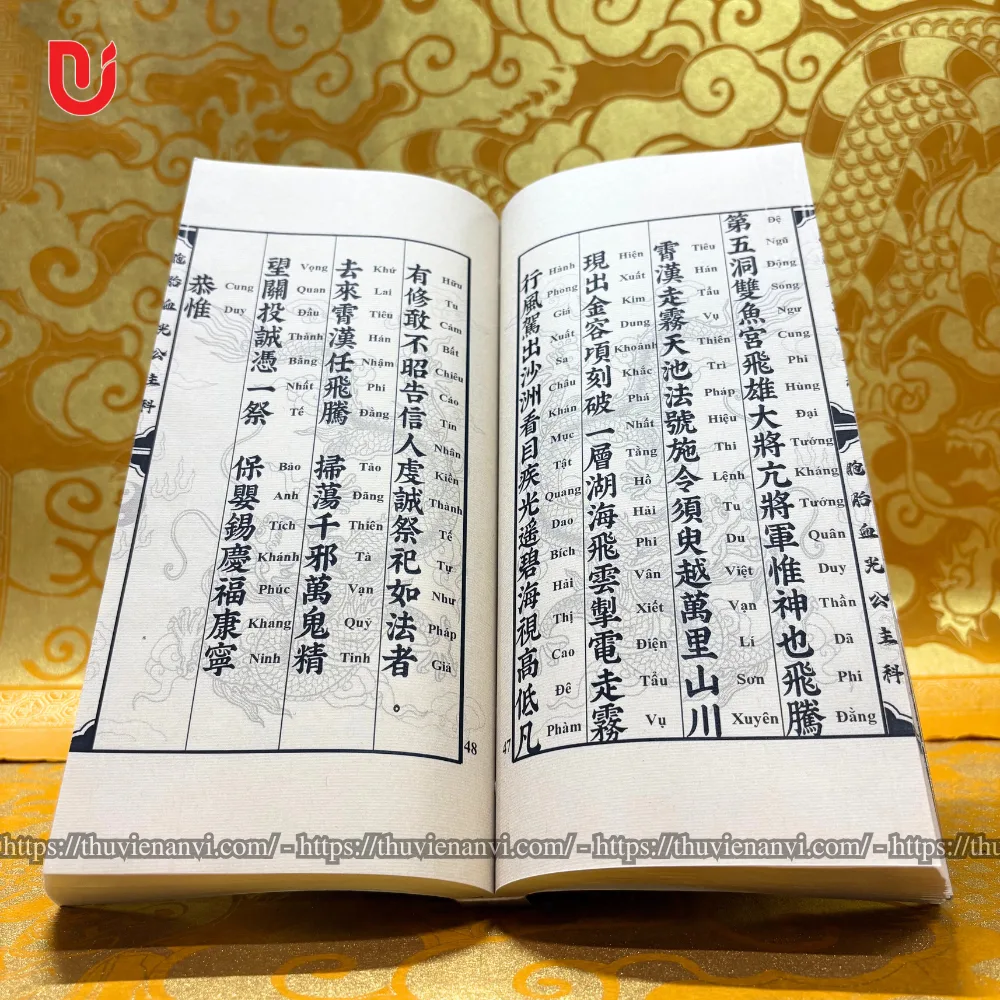 胞胎血光公主科
Đệ Ngũ Động Song Ngư Cung Phi Hùng Đại Tướng Kháng Tướng Quân Duy Thần Dã Phi Đằng
第五洞雙魚宮飛雄大將亢將軍惟神也飛騰
Tiêu Hán Tẩu Vụ Thiên Trì Pháp Hiệu Thi Lệnh Tu Du Việt Vạn Lí Sơn Xuyên
霄漢走霧天池法號施令須臾越萬里山川
Hiện Xuất Kim Dung Khoảnh Khắc Phá Nhất Tầng Hồ Hải Phi Vân Xiết Điện Tẩu Vụ
現出金容頃刻破一層湖海飛雲掣電走霧
Hành Phong Giá Xuất Sa Châu Khán Mục Tật Quang Dao Bích Hải Thị Cao Đê Phàm
行風駕出沙洲看目疾光遥碧海視高低凡
47
Hữu Tu Cảm Bất Chiêu Cáo Tín Nhân Kiền Thành Tế Tự Như Pháp Giả
有修敢不昭告信人虔誠祭祀如法者。
Khứ Lai Tiêu Hán Nhậm Phi Đằng Tảo Đãng Thiên Tà Vạn Quỷ Tinh
去來霄漢任飛騰 掃蕩千邪萬鬼精
Vọng Quan Đầu Thành Bằng Nhất Tế Bảo Anh Tích Khánh Phúc Khang Ninh
望關投誠憑一祭 保嬰錫慶福康寧
Cung Duy
恭惟
胞胎血光公主科
48
https://thuvienanvi.com/ - https://thuvienanvi.com/ - https://thuvienanvi.com/